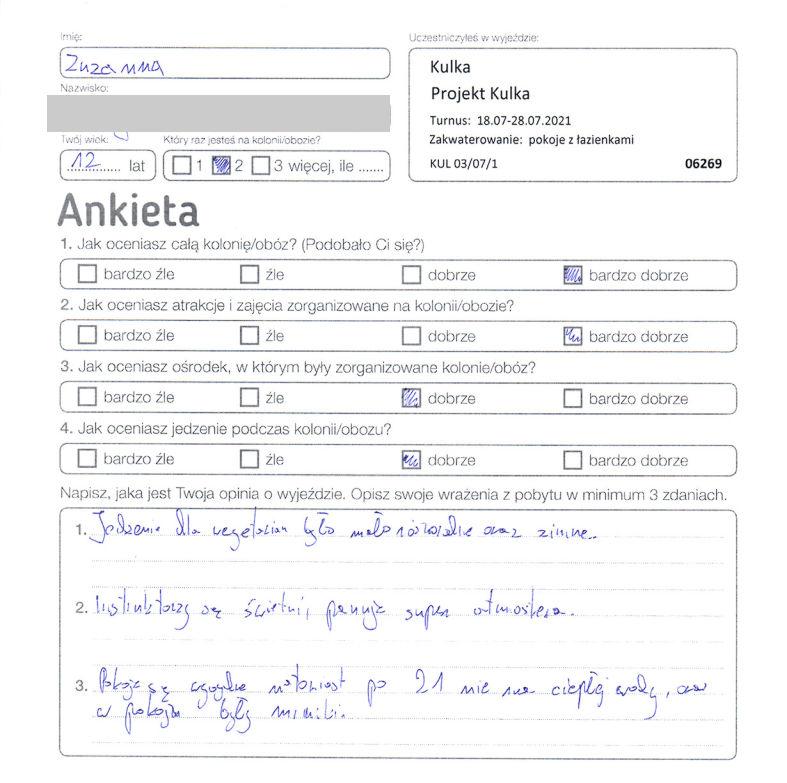 Imię:
Zuzanna
Nazwisko:
Twój wiek:
12 lat
Który raz jesteś na kolonii/obozie?
1 2 3 więcej, ile .......
Uczestniczyłeś w wyjeździe:
Kulka
Projekt Kulka
Turnus: 18.07-28.07.2021
Zakwaterowanie: pokoje z łazienkami
KUL 03/07/1 06269
Ankieta
1. Jak oceniasz całą kolonię/obóz? (Podobało Ci się?)
bardzo źle źle dobrze bardzo dobrze
2. Jak oceniasz atrakcje i zajęcia zorganizowane na kolonii/obozie?
bardzo źle źle dobrze bardzo dobrze
3. Jak oceniasz ośrodek, w którym były zorganizowane kolonie/obóz?
bardzo źle źle dobrze bardzo dobrze
4. Jak oceniasz jedzenie podczas kolonii/obozu?
bardzo źle źle dobrze bardzo dobrze
Napisz, jaka jest Twoja opinia o wyjeździe. Opisz swoje wrażenia z pobytu w minimum 3 zdaniach.
1. Jedzenie dla wegetarian było mało oraz zimne.
2. Instruktorzy są świetni, panuje super atmosfera.
3. Pokoje są natomiast po 21 nie ma ciepłej wody, oraz
w pokoju były mrówki.